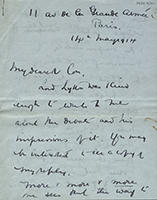 11 av de la Grande Armée
Paris.
14th May 1914
My dearest Con,
and Lytton was kind
enough to write to me
about the Debate and his
impressions of it. You may
be interested to see a copy of
my reply.
more & more & more
one sees that the way to